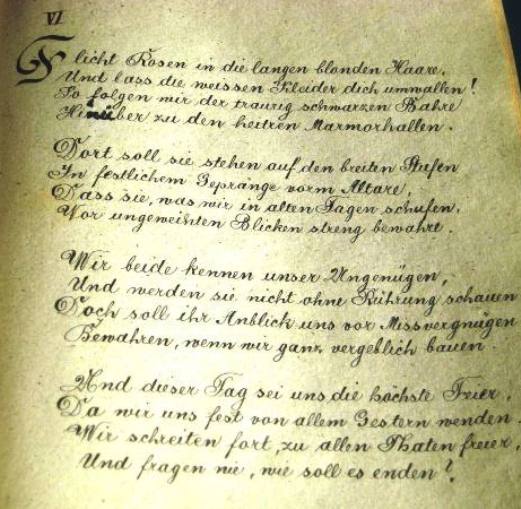 VI
Flicht Rosen in die langen blonden Haare,
Und lass die weissen Kleider dich umwallen!
So folgen wir der traurig schwarzen Bahre
Hinüber zu den heitren Marmorhallen.
Dort soll sie stehen auf den breiten Stufen
In festlichem Gepränge vorm Altare,
Dass sie, was wir in alten Tagen schufen,
Vor ungeweihten Blicken streng bewahrt.
Wir beide kennen unser Ungenügen,
Und werden sie nicht ohne Rührung schauen
Doch soll ihr Anblick uns vor Missvergnügen
Bewahren, wenn wir ganz vergeblich bauen.
Und dieser Tag sei uns die höchste Feier,
Da wir uns fest von allem Gestern wenden.
Wir schreiten fort, zu allen Thaten freier,
Und fragen nie, wie soll es enden?